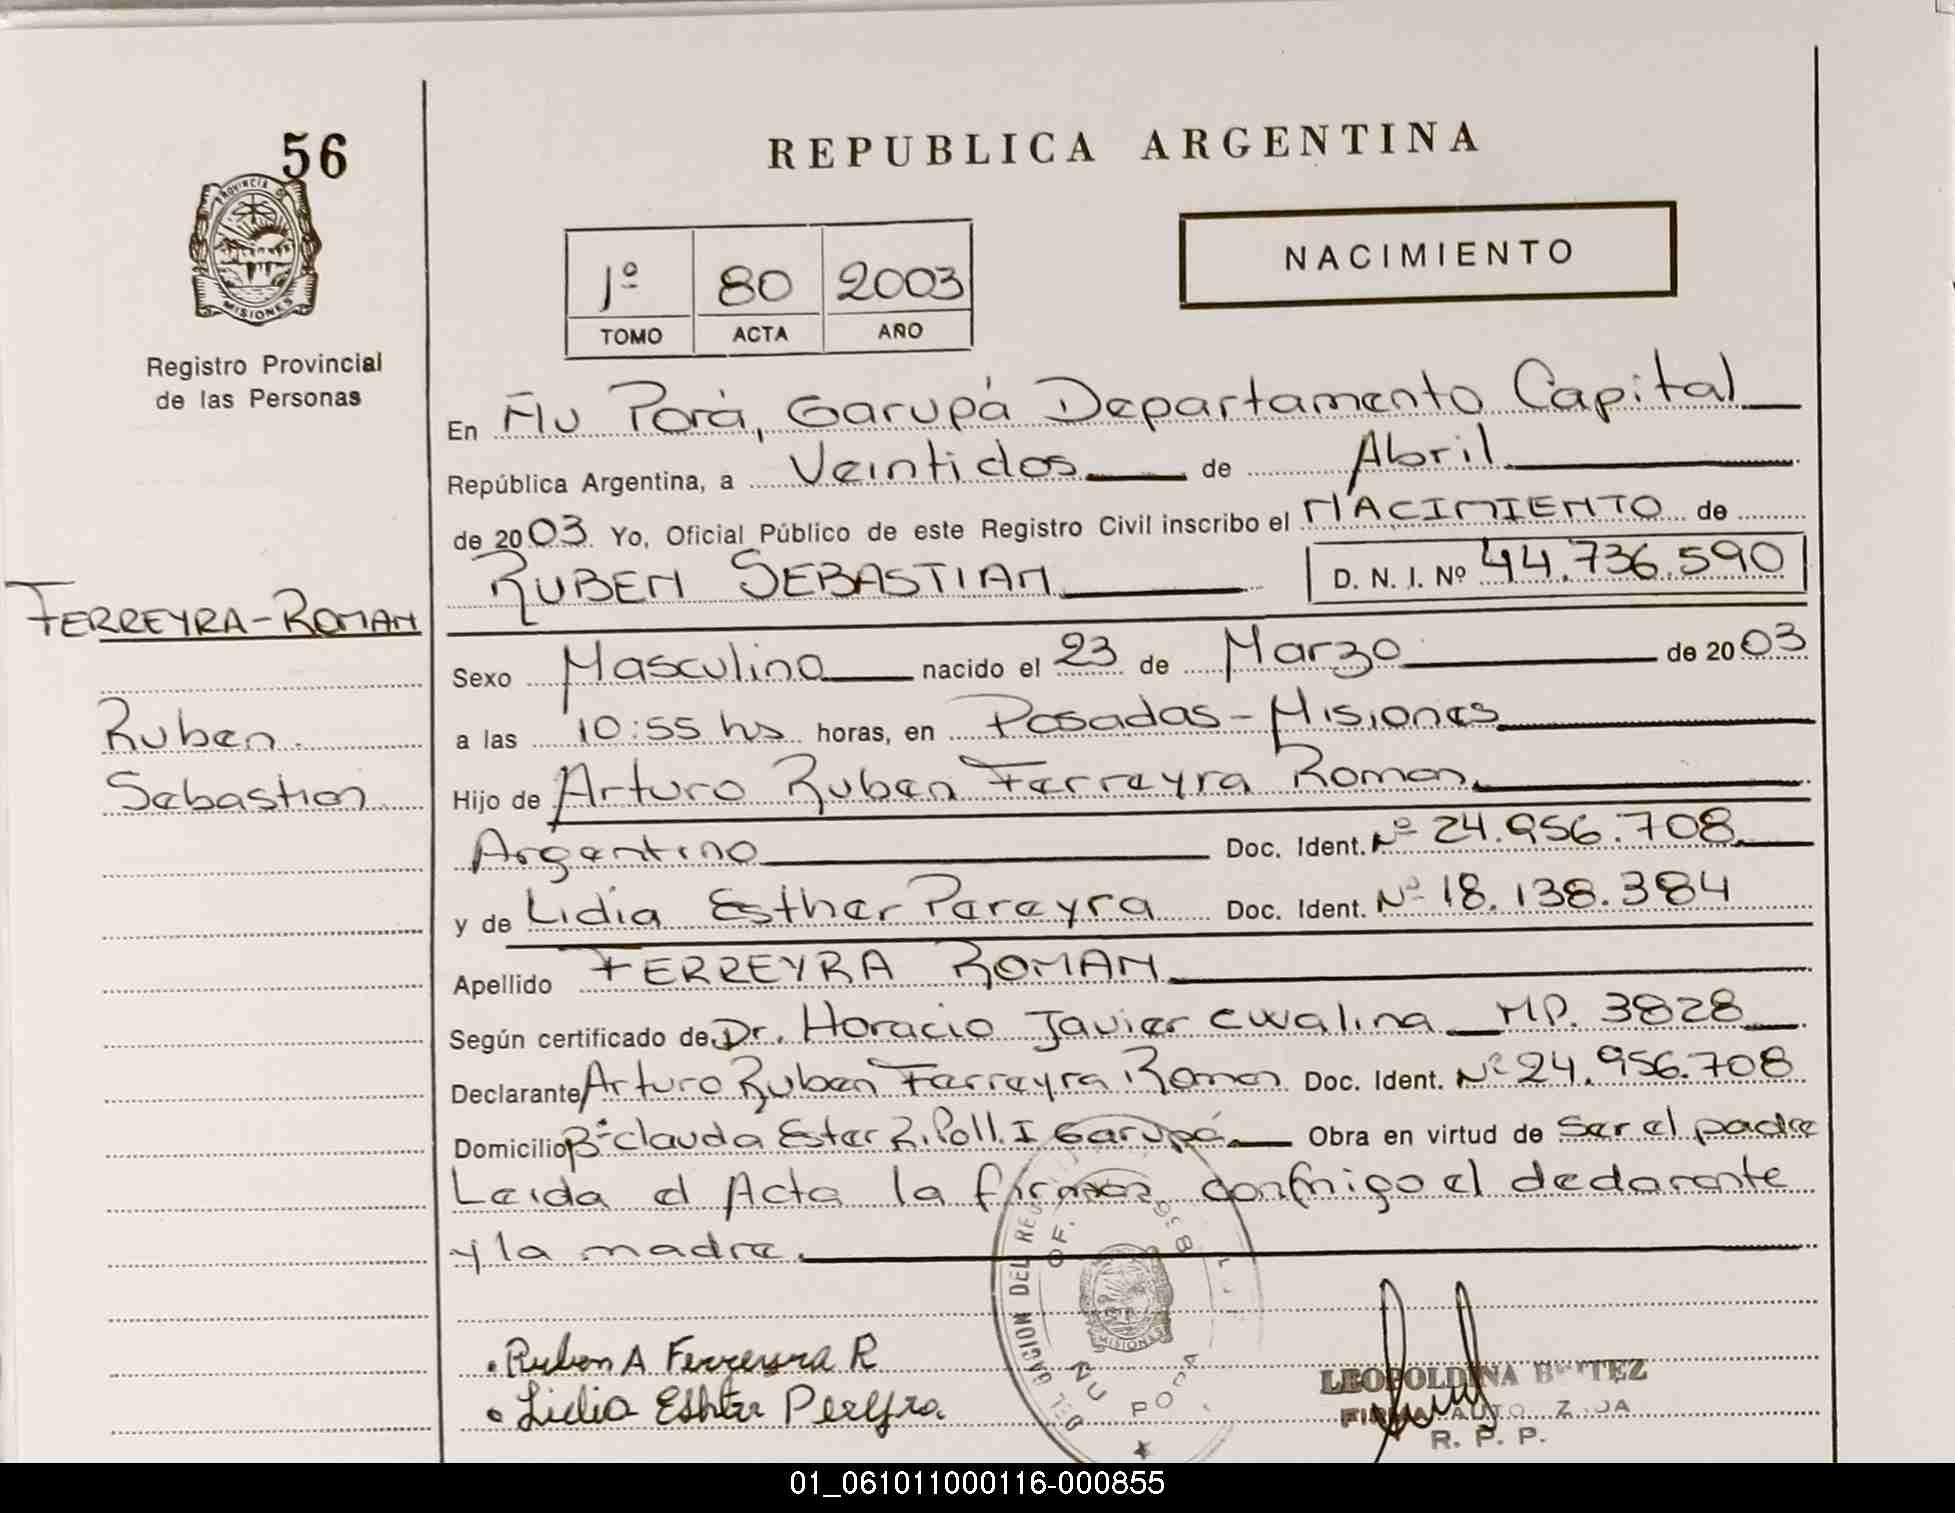 56
PROVINCIA DE
MISIONES
Registro Provincial
de las Personas
REPUBLICA ARGENTINA
1º 80 2003
TOMO ACTA AÑO
NACIMIENTO
En Ñu Porá, Garupá Departamento Capital
República Argentina, a Veintidos de Abril
de 2003 Yo, Oficial Público de este Registro Civil inscribo el NACIMIENTO de
RUBEN SEBASTIAN D. N. I. Nº 44.736.590
FERREYRA-ROMAN
Ruben
Sebastian
Sexo Masculino nacido el 23 de Marzo de 2003
a las 10:55 hs horas, en Posadas-Misiones
Hijo de Arturo Ruben Ferreyra Roman
Argentino Doc. Ident. Nº 24.956.708
y de Lidia Esther Pereyra Doc. Ident. Nº 18.138.384
Apellido FERREYRA ROMAN
Según certificado de Dr. Horacio Javier Cwalina MP. 3828
Declarante Arturo Ruben Ferreyra Roman Doc. Ident. Nº 24.956.708
Domicilio Bº Clauda Ester R. Poll. I Garupá Obra en virtud de Ser el padre
Leida el Acta la firman conmigo el declarante
y la madre.
Ruben A Ferreyra R
Lidia Eshter Pereyra
DELEGACION DEL
OF.
MISIONES
ÑU PORA
LEOPOLDINA BENITEZ
FIRMA AUTORIZADA
R. P. P.
01_061011000116-000855